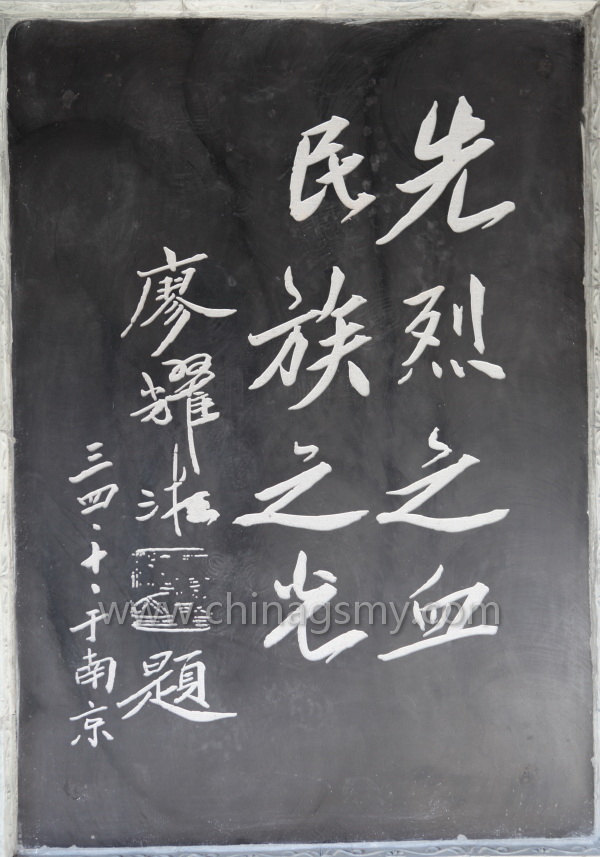 先烈之血
民族之光
廖耀湘題
三四·十·于南京
www.chinagsmy.com